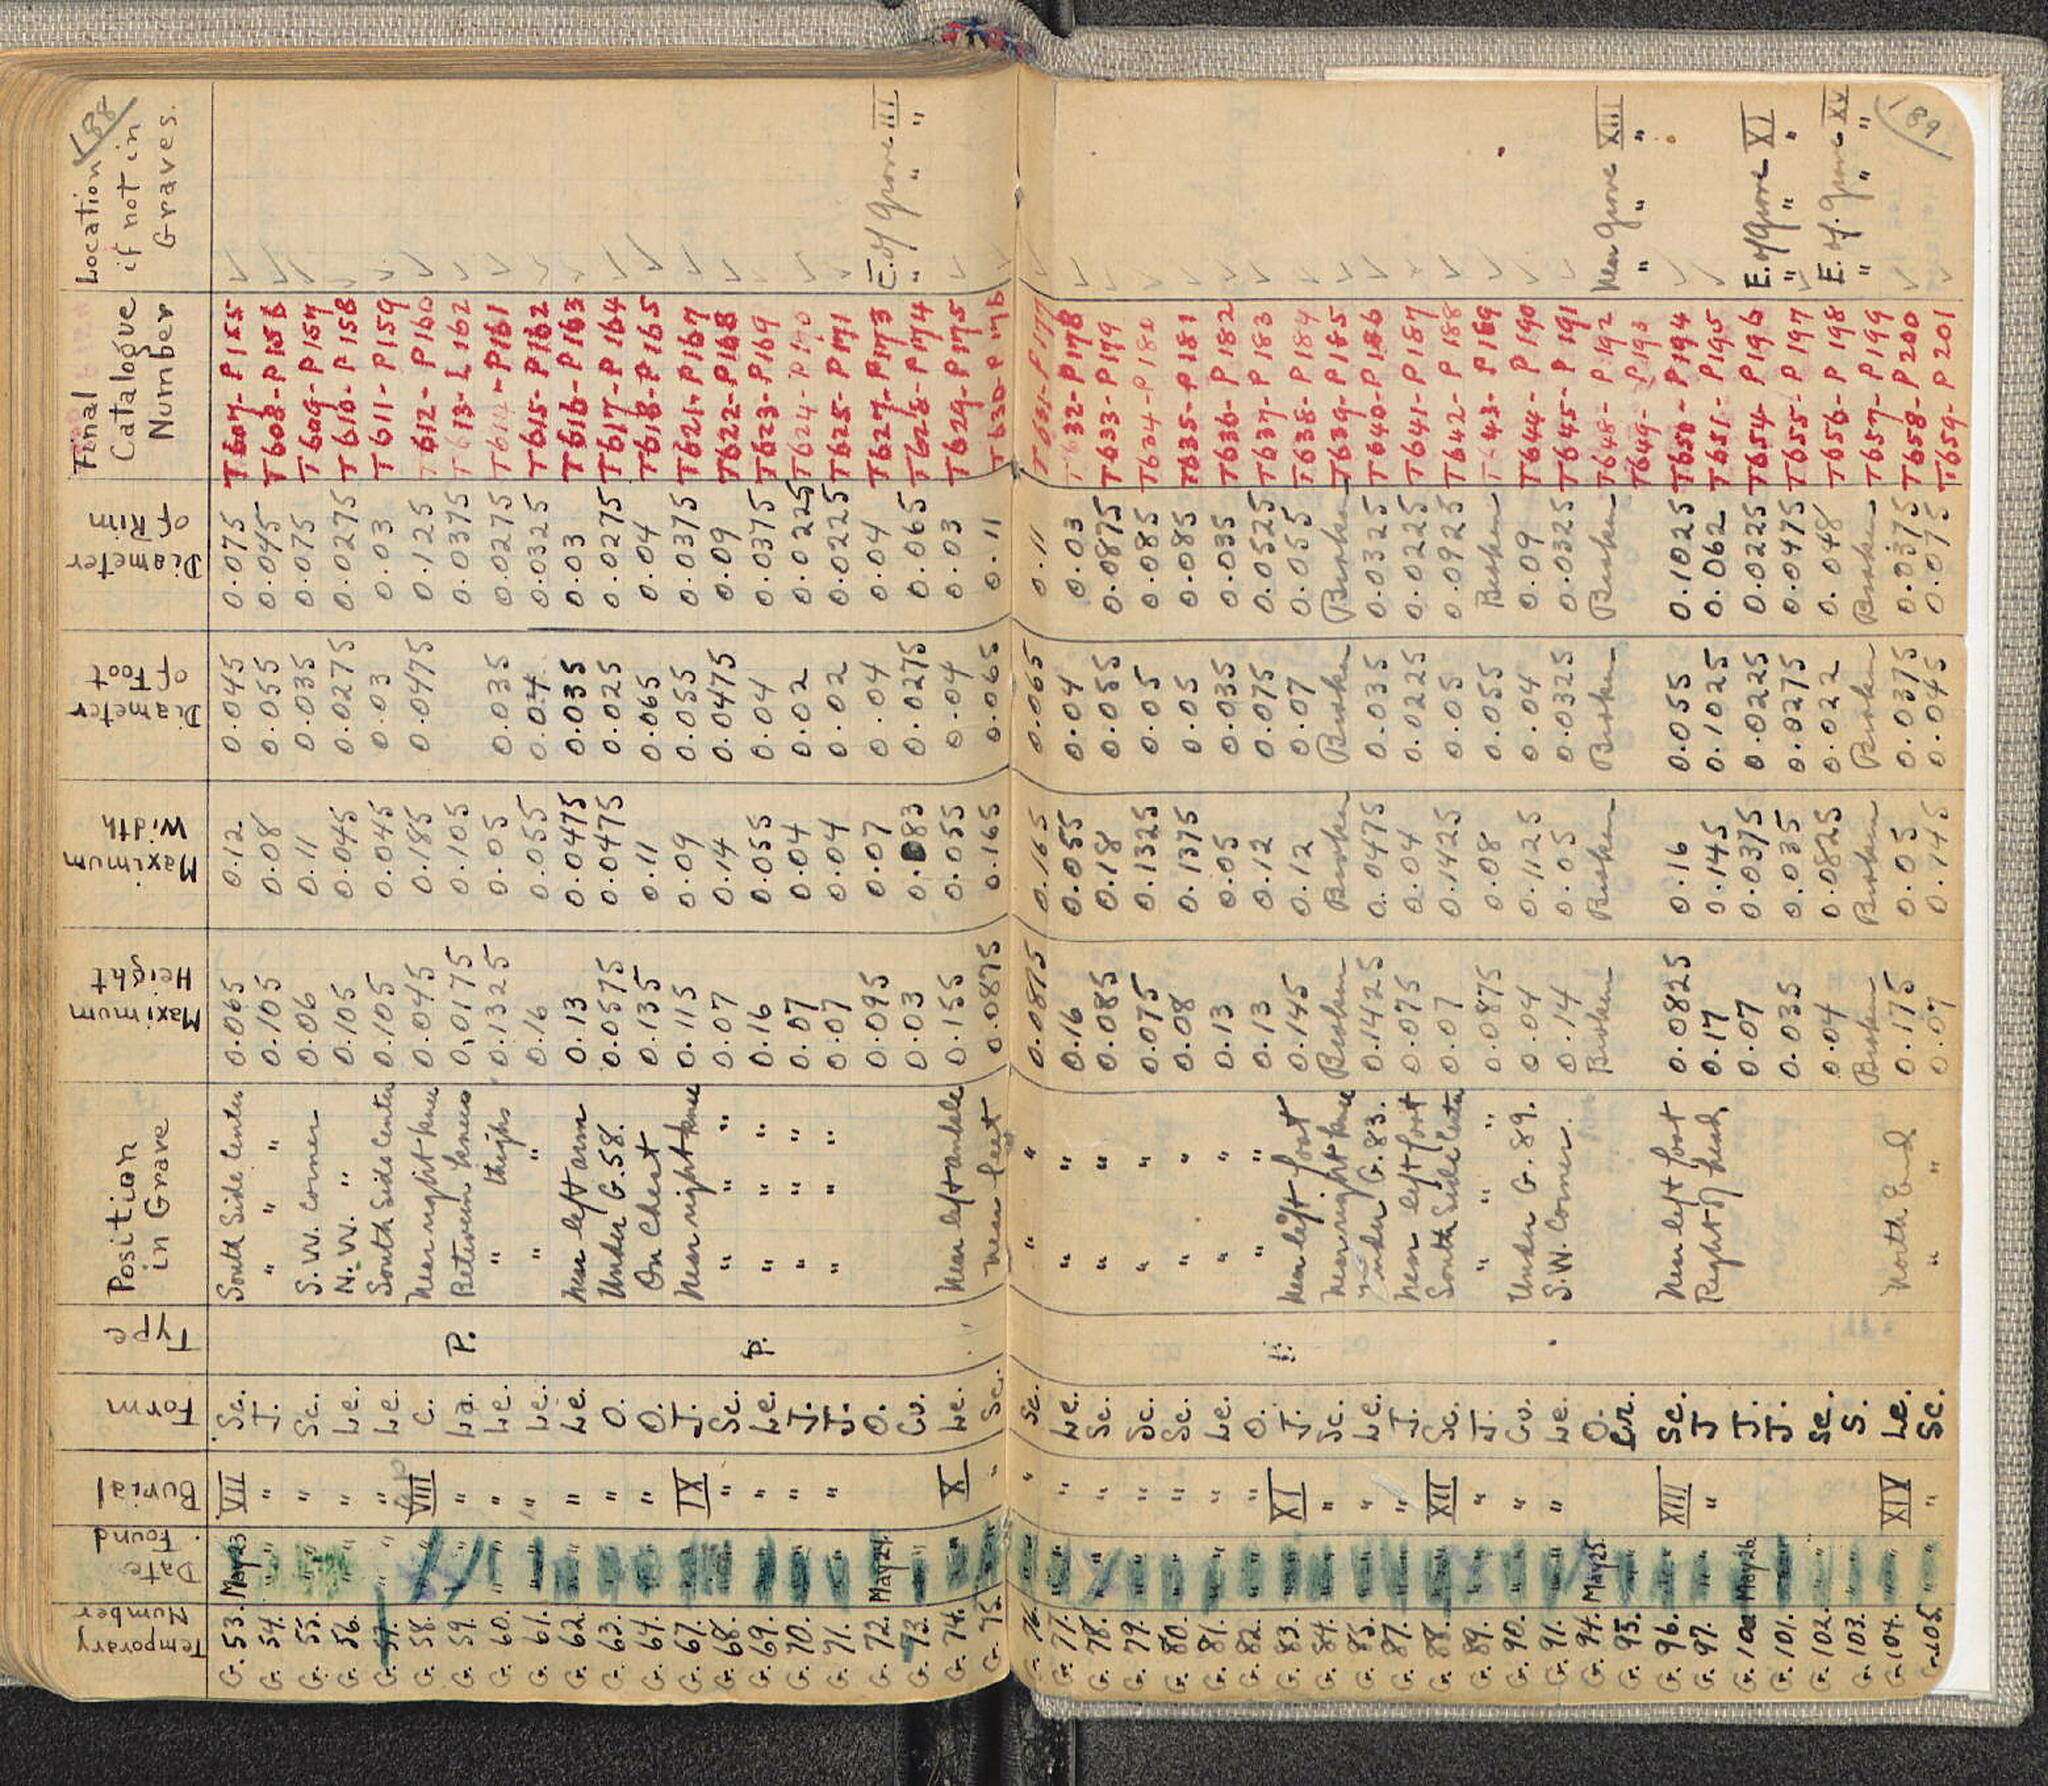 188
Temporary Number Date Found. Burial Form Type Position in Grave Maximum Height Maximum Width Diameter of Foot Diameter of Rim Final Catalogue Number Location if not in Graves.
G. 53. May 23 VII Sc. South Side Center 0.065 0.12 0.045 0.075 T607-P155
G. 54. " " J. " " " 0.105 0.08 0.055 0.045 T608-P156
G. 55. " " Sc. S.W. Corner 0.06 0.11 0.035 0.075 T609-P157
G. 56. " " Le. N.W. " 0.105 0.045 0.0275 0.0275 T610-P158
G. 57. " " Le. South Side Center 0.105 0.045 0.03 0.03 T611-P159
G. 58. " VIII C. Near right knee 0.045 0.185 0.0475 0.125 T612-P160
G. 59. " " La. P. Between knees 0.0175 0.105 0.0375 T613-L162
G. 60. " " Le. " thighs 0.1325 0.05 0.035 0.0275 T614-P161
G. 61. " " Le. " " 0.16 0.055 0.04 0.0325 T615-P162
G. 62. " " Le. Near left arm 0.13 0.0475 0.035 0.03 T616-P163
G. 63. " " O. Under G.58. 0.0575 0.0475 0.025 0.0275 T617-P164
G. 64. " " O. On Chest 0.135 0.11 0.065 0.04 T618-P165
G. 67. " IX J. Near right knee 0.115 0.09 0.055 0.0375 T621-P167
G. 68. " " Sc. " " " 0.07 0.14 0.0475 0.09 T622-P168
G. 69. " " Le. P. " " " 0.16 0.055 0.04 0.0375 T623-P169
G. 70. " " J. " " " 0.07 0.04 0.02 0.0225 T624-P170
G. 71. " " J. " " " 0.07 0.04 0.02 0.0225 T625-P171
G. 72. May 24. O. 0.095 0.07 0.04 0.04 T627-P173 E. of Grave III
G. 73. " Cu. 0.03 0.083 0.0275 0.065 T628-P174 " " "
G. 74. " X Le. Near left ankle 0.155 0.055 0.04 0.03 T629-P175
G. 75. " " Sc. Near feet 0.0875 0.165 0.065 0.11 T630-P176
189
G. 76. " " Sc. " " 0.0875 0.165 0.065 0.11 T631-P177
G. 77. " " Le. " " 0.16 0.055 0.04 0.03 T632-P178
G. 78. " " Sc. " " 0.085 0.18 0.055 0.0875 T633-P179
G. 79. " " Sc. " " 0.075 0.1325 0.05 0.085 T634-P180
G. 80. " " Sc. " " 0.08 0.1375 0.05 0.085 T635-P181
G. 81. " " Le. " " 0.13 0.05 0.035 0.035 T636-P182
G. 82. " " O. " " 0.13 0.12 0.075 0.0525 T637-P183
G. 83. " XI J. Near left foot 0.145 0.12 0.07 0.055 T638-P184
G. 84. " " Sc. Near right knee Broken Broken Broken Broken T639-P185
G. 85. " " Le. Under G.83. 0.1425 0.0475 0.035 0.0325 T640-P186
G. 87. " " J. Near left foot 0.075 0.04 0.0225 0.0225 T641-P187
G. 88. " XII Sc. South Side Center 0.07 0.1425 0.05 0.0925 T642-P188
G. 89. " " J. " " " 0.0875 0.08 0.055 Broken T643-P189
G. 90. " " Cu. Under G.89. 0.04 0.1125 0.04 0.09 T644-P190
G. 91. " " Le. S.W. Corner. 0.14 0.05 0.0325 0.0325 T645-P191
G. 94. May 25. O. Broken Broken Broken Broken T648-P192 Near Grave XIII
G. 95. " T649-P193 " " "
G. 96. " XIII Sc. Near left foot 0.0825 0.16 0.055 0.1025 T650-P194
G. 97. " " J Right of head 0.17 0.145 0.1025 0.062 T651-P195
G. 100 May 26 J. 0.07 0.0375 0.0225 0.0225 T654-P196 E. of Grave XI
G. 101. " J. 0.035 0.035 0.0275 0.0475 T655-P197 " " "
G. 102. " Sc. 0.04 0.0825 0.022 0.048 T656-P198 E. of Grave XV
G. 103. " S. Broken Broken Broken Broken T657-P199 " " "
G. 104. " XIV Le. North End 0.175 0.05 0.0375 0.0375 T658-P200
G. 105. " " Sc. " " 0.07 0.145 0.045 0.075 T659-P201